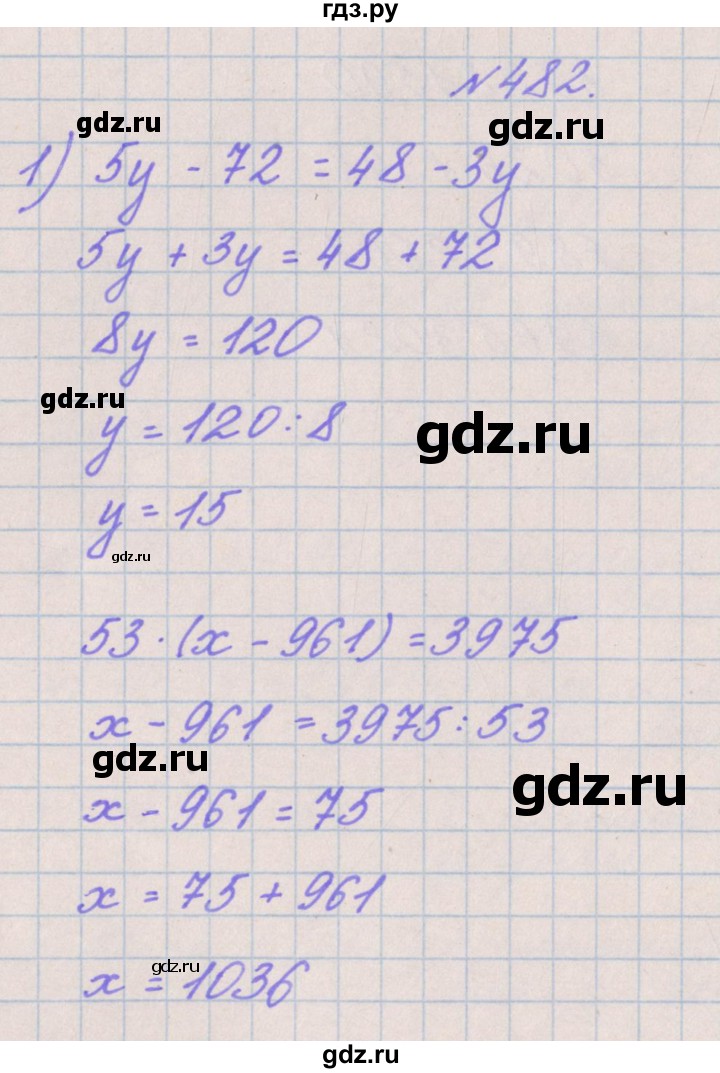 гдз.ру
№482.
gdz.ru
gdz.ru
1) 5y - 72 = 48 - 3y
5y + 3y = 48 + 72
8y = 120
gdz.ru
y = 120 : 8
gdz.ru
y = 15
gdz.ru
53 · (x - 961) = 3975
x - 961 = 3975 : 53
gdz.ru
x - 961 = 75
gdz.ru
x = 75 + 961
gdz.ru
x = 1036
gdz.ru